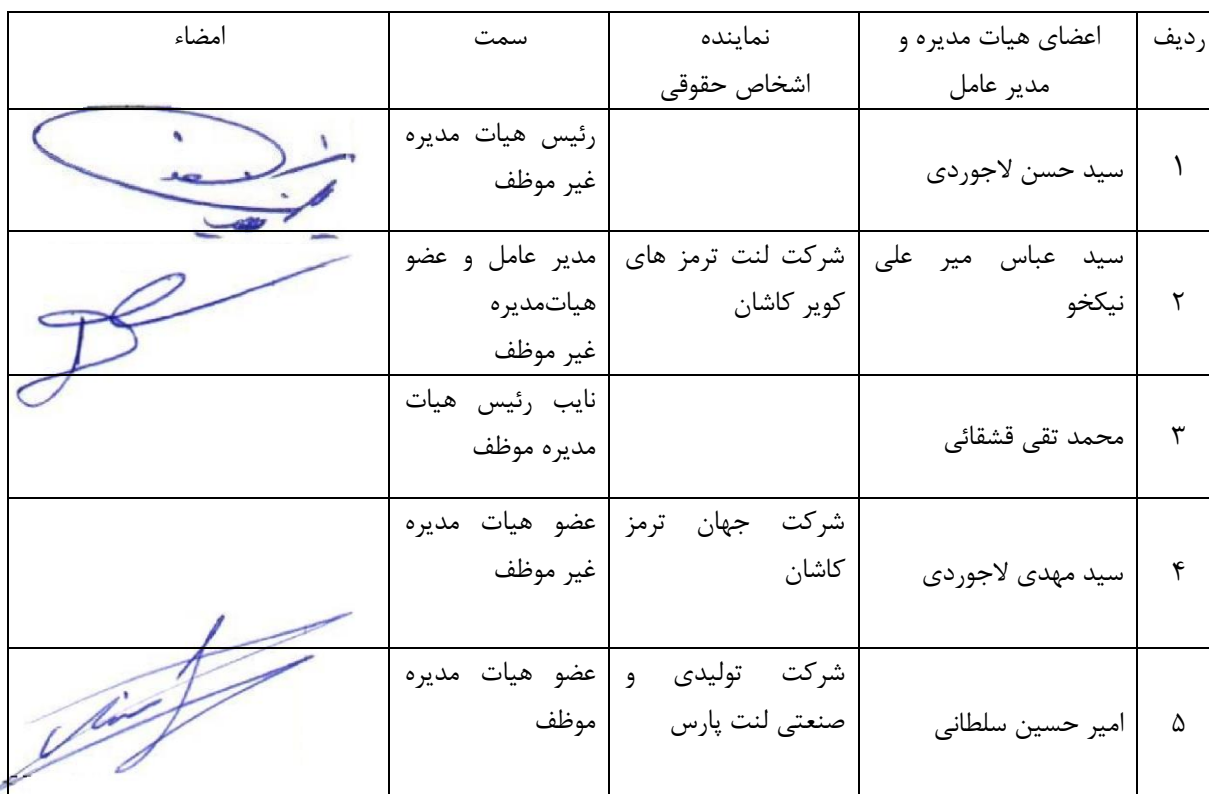 ردیف
اعضای هیات مدیره و
مدیر عامل
نماینده
اشخاص حقوقی
سمت
امضاء
۱
سید حسن لاجوردی
رئیس هیات مدیره
غیر موظف
۲
سید عباس میر علی
نیکخو
شرکت لنت ترمز های
کویر کاشان
مدیر عامل و عضو
هیات‌مدیره
غیر موظف
۳
محمد تقی قشقائی
نایب رئیس هیات
مدیره موظف
۴
سید مهدی لاجوردی
شرکت جهان ترمز
کاشان
عضو هیات مدیره
غیر موظف
۵
امیر حسین سلطانی
شرکت تولیدی و
صنعتی لنت پارس
عضو هیات مدیره
موظف